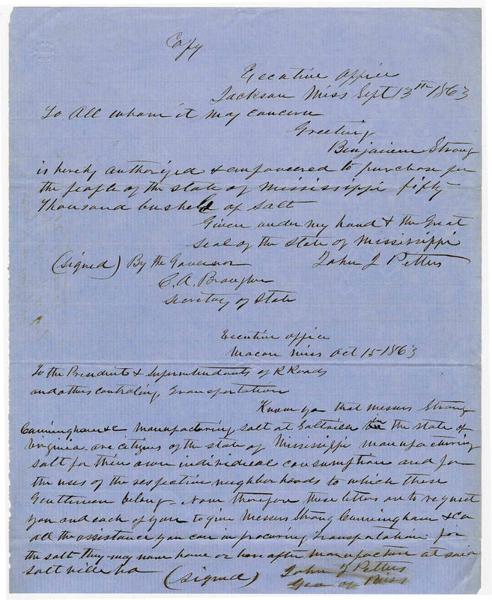 Copy
Executive office
Jackson Miss Sept 13th 1863
To All whom it may concern
Greeting
Benjamin Strong
is hereby authorized & empowered to purchase for
the people of the state of Mississippi fifty
thousand bushels of salt
Given under my hand & the Great
seal of the state of Mississippi
(signed) By the Governor John J Pettus
C. A. Brougher
Secretary of State
Executive office
Macon Miss Oct 15 1863
To the Presidents & Superintendants of R Roads
and others controling Transportation
Know ye that messrs Strong
Cunningham & c manufactoring salt at Saltville in the state of
Virginia are citizens of the state of Mississippi manufacturing
salt for their own individual consumption and for
the uses of the respective neighborhoods to which these
Gentlemen belong - Now therefore these letters are to request
you and each of you to give Messrs Strong Cunningham & Co
all the assistance you can in procuring Transportation for
the salt they may now have or hereafter manufacture at said
saltville Va (signed) John J Pettus
Gov of Miss